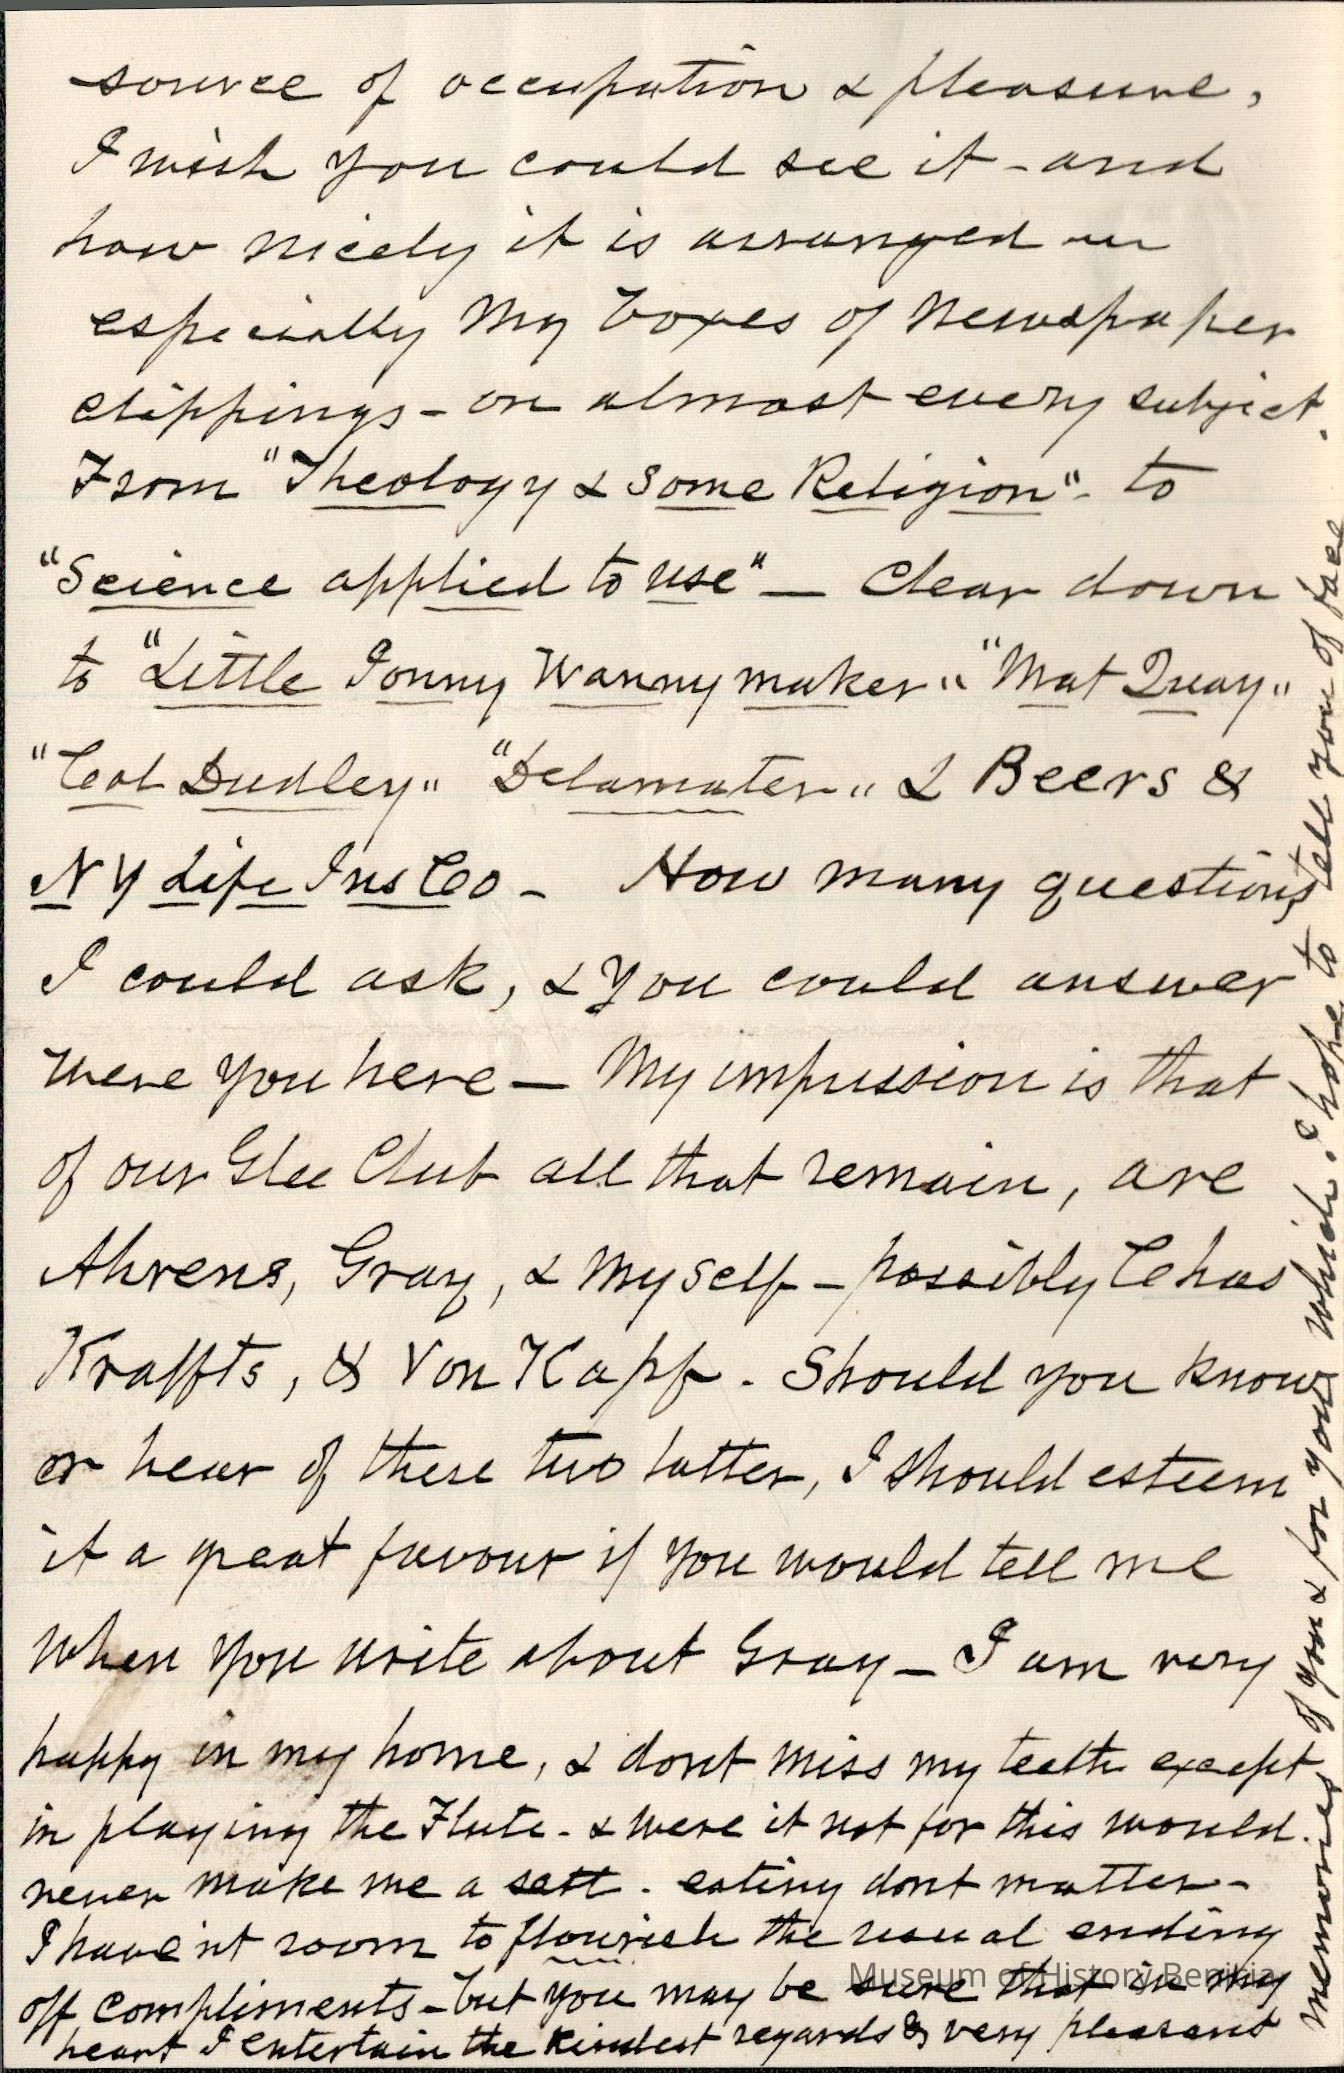 source of occupation & pleasure,
I wish you could see it - and
how nicely it is arranged
especially My boxes of Newspaper
clippings - on almost every subject.
From "Theology & some Religion" - to
"Science applied to use" — Clear down
to "Little Jonny Wannymaker" "Mat Quay"
"Col Dudley" "Delamater" & Beers &
NY Life Ins Co - How many questions
I could ask, & You could answer
were you here — My impression is that
of our Glee Club all that remain, are
Ahrens, Gray, & Myself - possibly Chas
Kraffts, & Von Kapf. Should you know
or hear of these two latter, I should esteem
it a great favour if you would tell me
when you write about Gray - I am very
happy in my home, & dont miss my teeth except
in playing the Flute - & were it not for this would
never make me a sett. eating dont matter -
I have'nt room to flourish the usual ending
off compliments - but you may be sure that in my
heart I entertain the kindest regards & very pleasant
memories of you & for you which I hope to tell you of face
Museum of History Benicia